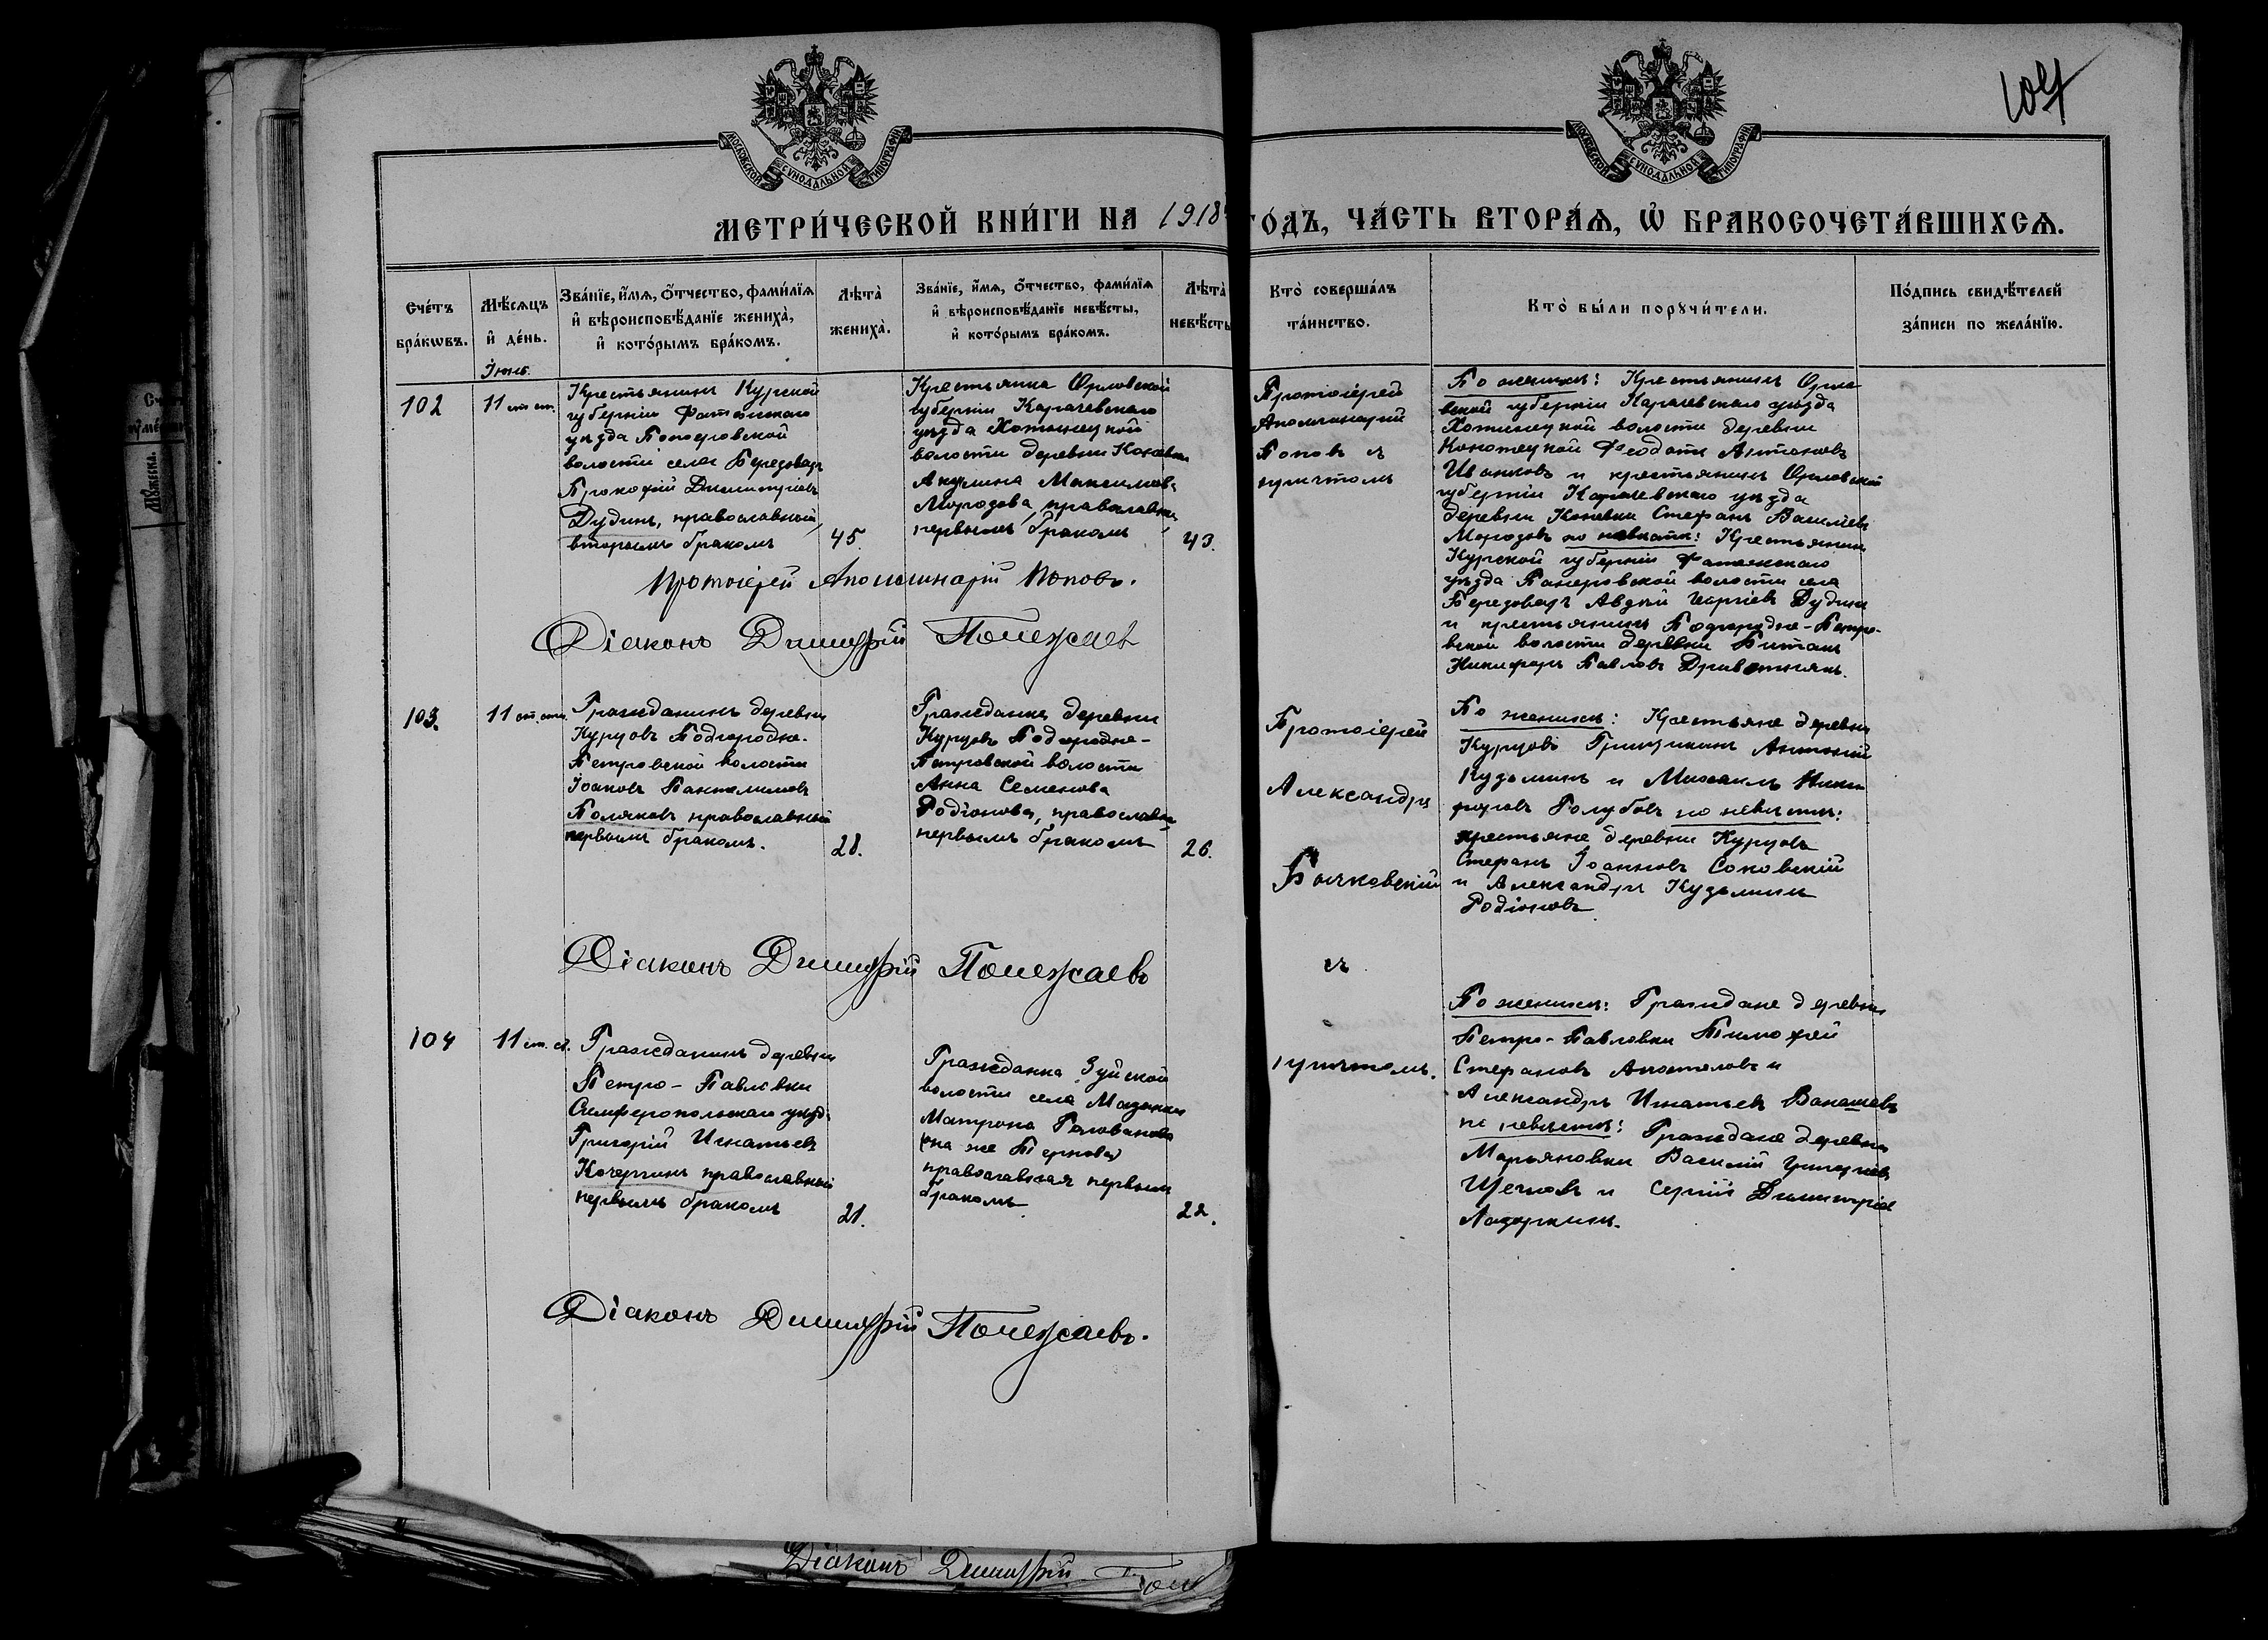 МОСКОВСКОЙ СУНОДАЛЬНОЙ ТИПОГРАФІИ
МОСКОВСКОЙ СУНОДАЛЬНОЙ ТИПОГРАФІИ
МЕТРИ́ЧЕСКОЙ КНИ́ГИ НА 1918
ГО́ДЪ, ЧА́СТЬ ВТОРА́Ѧ, Ѡ҆ БРАКОСОЧЕТА́ВШИХСѦ.
Сче́тъ бра́кѡвъ.
Мѣ́сѧцъ и҆ де́нь.
Зва́нїе, и҆́мѧ, ѻ҆́тчество, фами́лїѧ
и҆ вѣроисповѣ́данїе жениха̀,
и҆ кото́рымъ бра́комъ.
Лѣта̀ жениха̀.
Зва́нїе, и҆́мѧ, ѻ҆́тчество, фами́лїѧ
и҆ вѣроисповѣ́данїе невѣ́сты,
и҆ кото́рымъ бра́комъ.
Лѣта̀ невѣ́сты
Кто̀ соверша́лъ та́инство.
Кто̀ бы́ли порꙋчи́тели.
По́дпись свидѣ́телей
за́писи по жела́нїю.
Іюнь.
102
11 ст. ст.
Крестьянинъ Курской
губерніи Фатежскаго
уѣзда
волости села
Прокофій Димитріевъ
Дудинъ, православный,
вторымъ бракомъ
45.
Крестьянка Орловской
губерніи Карачевскаго
уѣзда Хотынецкой
волости деревни Коневки
Акулина Максимова
Морозова, православная,
первымъ бракомъ
43.
Протоіерей
Аполлинарій
Поповъ съ
причтомъ
По женихѣ: Крестьянинъ Орло-
вской губерніи Карачевскаго уѣзда
Хотынецкой волости деревни
Феодотъ Антоновъ
и крестьянинъ Орловской
губерніи Карачевскаго уѣзда
деревни Коневки Стефанъ Васильевъ
Морозовъ по невѣстѣ: Крестьянинъ
Курской губерніи Фатежскаго
уѣзда волости села
Дудинъ
и крестьянинъ Подгородне-Петро-
вской волости деревни Битакъ
Никифоръ Павловъ
Протоіерей Аполлинарій Поповъ.
Діаконъ Димитрій Полежаевъ
103.
11 ст. ст.
Гражданинъ деревни
Курцовъ Подгородне-
Петровской волости
Іоаковъ Пантелимоновъ
Поляковъ православный
первымъ бракомъ.
28.
Гражданка деревни
Курцовъ Подгородне-
Петровской волости
Анна Семенова
Родіонова, православная
первымъ бракомъ
26.
Протоіерей
Александръ
съ
причтомъ.
По женихѣ: Крестьяне деревни
Курцовъ Антоній
Кузьминъ и Михаилъ Ники-
форовъ Голубовъ по невѣстѣ:
крестьяне деревни Курцовъ
Стефанъ Іоанновъ Соковскій
и Александръ Кузьминъ
Родіоновъ
Діаконъ Димитрій Полежаевъ
104
11 ст. ст.
Гражданинъ деревни
Петро-Павловки
Симферопольскаго уѣзда
Григорій Игнатьевъ
Кочергинъ православный
первымъ бракомъ
21.
Гражданка Зуйской
волости села Мазанки
Матрона Голованова
(она же Пернова)
православная первымъ
бракомъ
22.
По женихѣ: Граждане деревни
Петро-Павловки Тимофей
Стефановъ Апостоловъ и
Александръ Игнатьевъ
по невѣстѣ: Граждане деревни
Марьяновки Василій Григорьевъ
и Сергій Димитріевъ
Лазаркинъ.
Діаконъ Димитрій Полежаевъ.
Діаконъ Димитрій